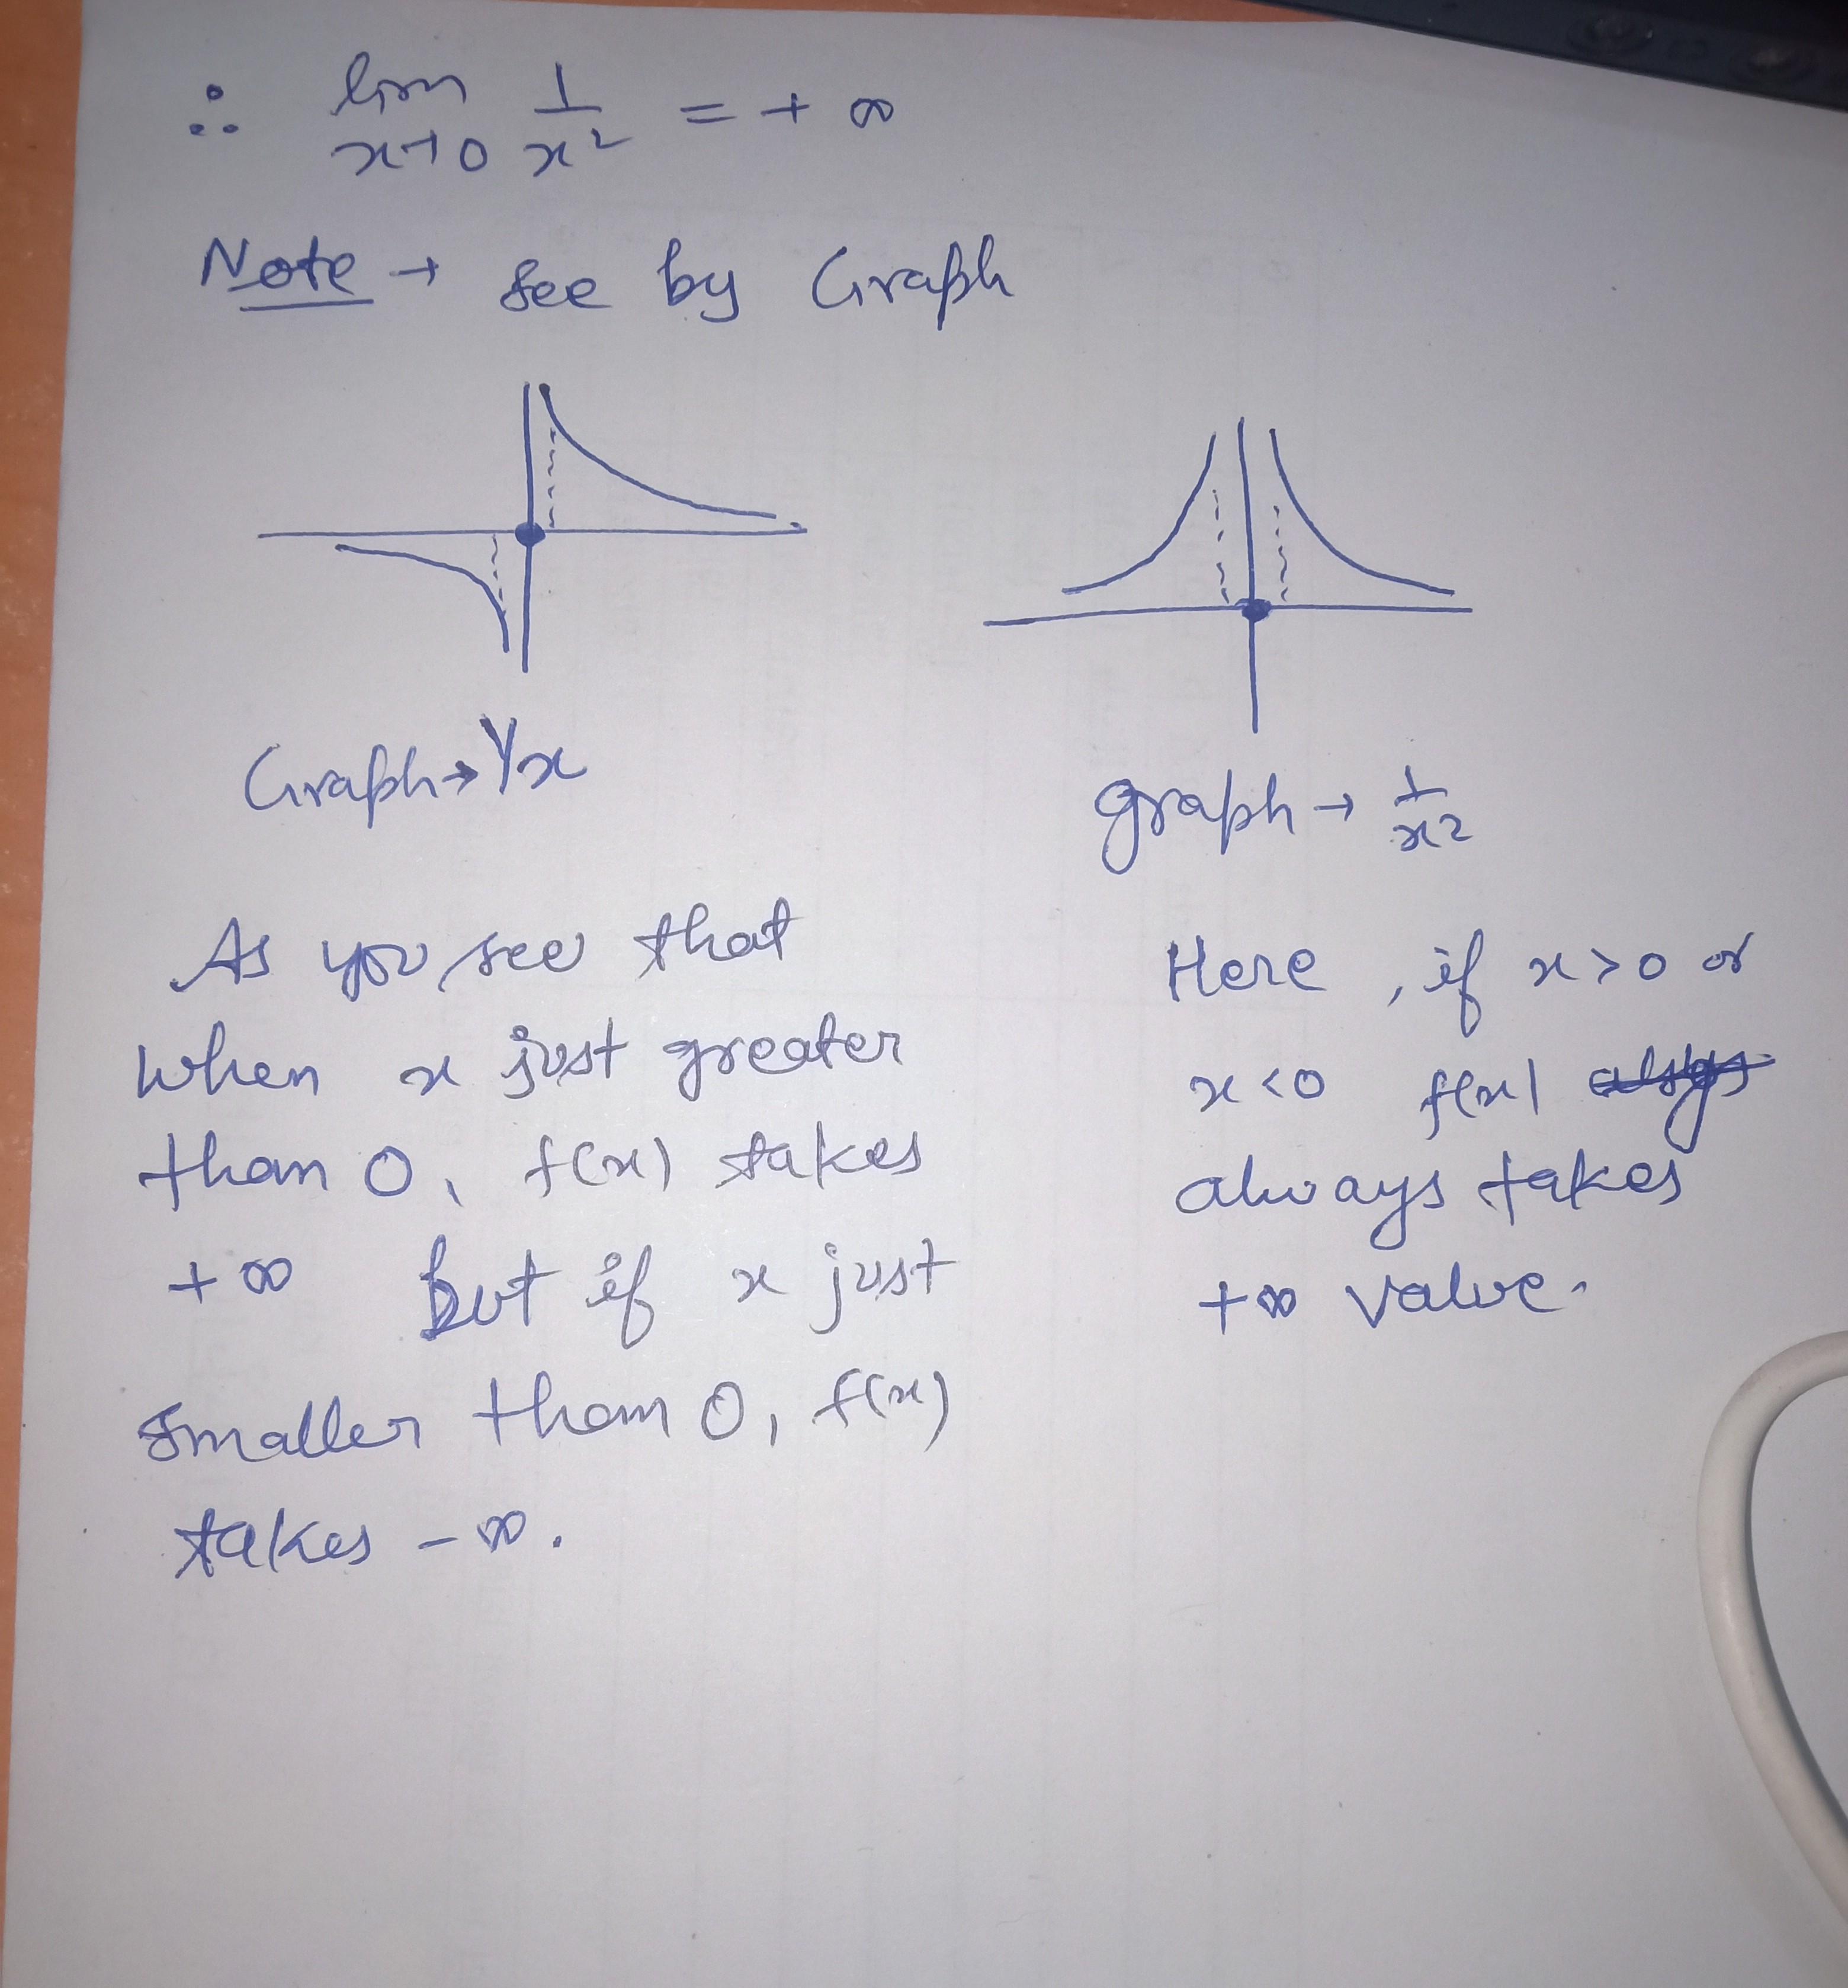 ∴ lim 1/x² = + ∞
x→0
Note → see by Graph
Graph → 1/x
graph → 1/x²
As you see that
when x just greater
than 0, f(x) takes
+∞ but if x just
smaller than 0, f(x)
takes -∞.
Here, if x>0 or
x<0 f(x)
always takes
+∞ value.